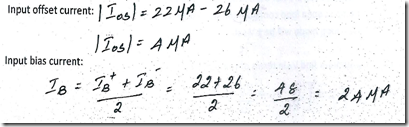 Input offset current: |Ios| = 22 μA - 26 μA
|Ios| = 4 μA
Input bias current:
IB = (IB+ + IB-)/2 = (22+26)/2 = 48/2 = 24 μA